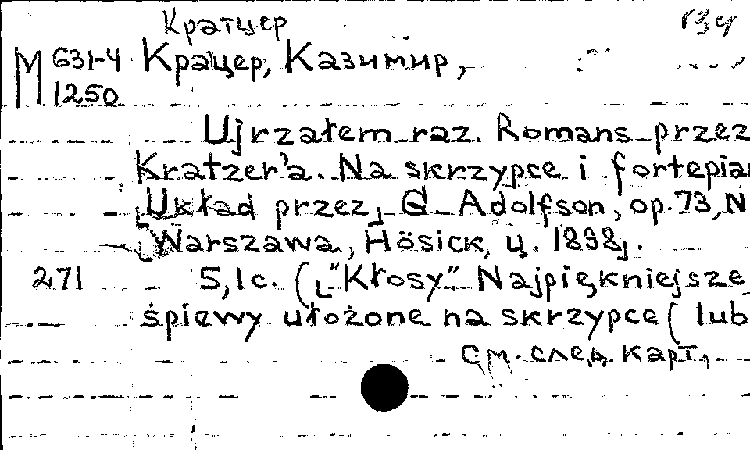 Кратцер
М 631-4 Крацер, Казимир,
1250
Ujrzałem raz. Romans przez
Kratzer'a. Na skrzypce i fortepian
[Układ przez] G Adolfson, op. 73, N
[Warszawa, Hösick, ц. 1898].
271 5, 1 c. (["Kłosy" Najpiękniejsze
śpiewy ułożone na skrzypce ( lub
См. след. карт.